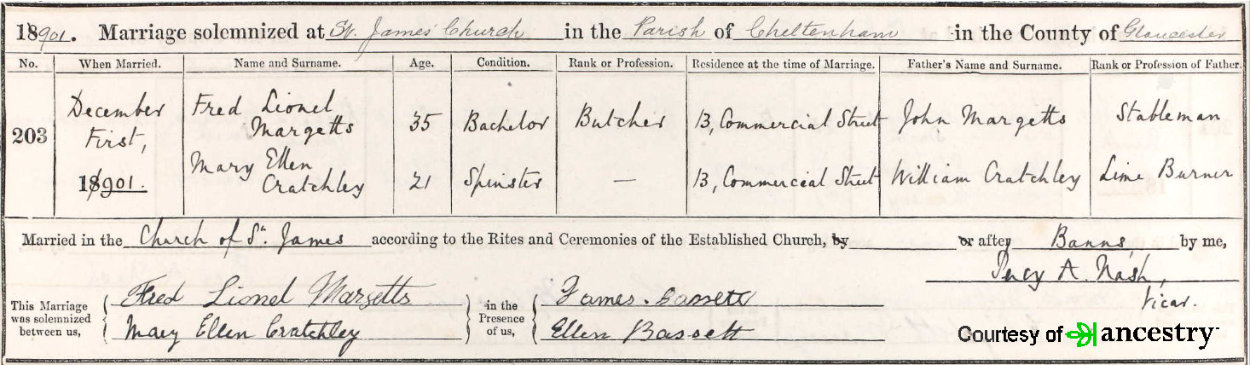 18901. Marriage solemnized at St. James' Church in the Parish of Cheltenham in the County of Gloucester
No. When Married. Name and Surname. Age. Condition. Rank or Profession. Residence at the time of Marriage. Father's Name and Surname. Rank or Profession of Father.
203 December First, 18901. Fred Lionel Margetts 35 Bachelor Butcher 13, Commercial Street John Margetts Stableman
Mary Ellen Cratchley 21 Spinster — 13, Commercial Street William Cratchley Lime Burner
Married in the Church of St. James according to the Rites and Ceremonies of the Established Church, by or after Banns, by me,
Percy A. Nash,
Vicar.
This Marriage was solemnized between us, { Fred Lionel Margetts } in the Presence of us, { James Bassett
Mary Ellen Cratchley Ellen Bassett
Courtesy of ancestry